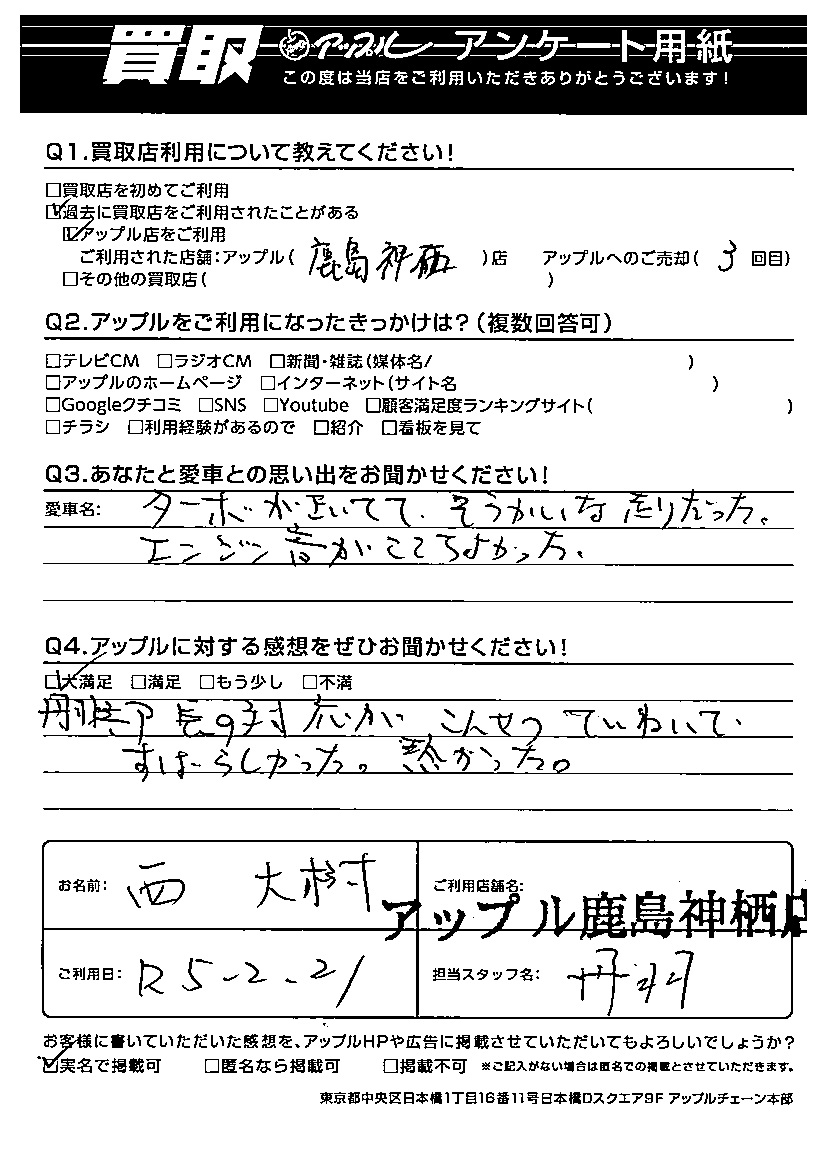 買取 アップル アンケート用紙
この度は当店をご利用いただきありがとうございます!
Q1.買取店利用について教えてください!
□買取店を初めてご利用
☑過去に買取店をご利用されたことがある
☑アップル店をご利用
ご利用された店舗:アップル( 鹿島神栖 )店 アップルへのご売却( 3 回目)
□その他の買取店( )
Q2.アップルをご利用になったきっかけは?(複数回答可)
□テレビCM □ラジオCM □新聞・雑誌(媒体名/ )
□アップルのホームページ □インターネット(サイト名 )
□Googleクチコミ □SNS □Youtube □顧客満足度ランキングサイト( )
□チラシ □利用経験があるので □紹介 □看板を見て
Q3.あなたと愛車との思い出をお聞かせください!
愛車名: ターボがきいてて、そうかいな走りだった。
エンジン音がここちよかった、
Q4.アップルに対する感想をぜひお聞かせください!
☑大満足 □満足 □もう少し □不満
丹羽店長の対応が、こんせつていねいで
すばらしかった。熱かった。
お名前: 西 大樹 ご利用店舗名:
アップル鹿島神栖店
ご利用日: R5-2-21 担当スタッフ名: 丹羽
お客様に書いていただいた感想を、アップルHPや広告に掲載させていただいてもよろしいでしょうか?
☑実名で掲載可 □匿名なら掲載可 □掲載不可 ※ご記入がない場合は匿名での掲載とさせていただきます。
東京都中央区日本橋1丁目16番11号日本橋Dスクエア9F アップルチェーン本部